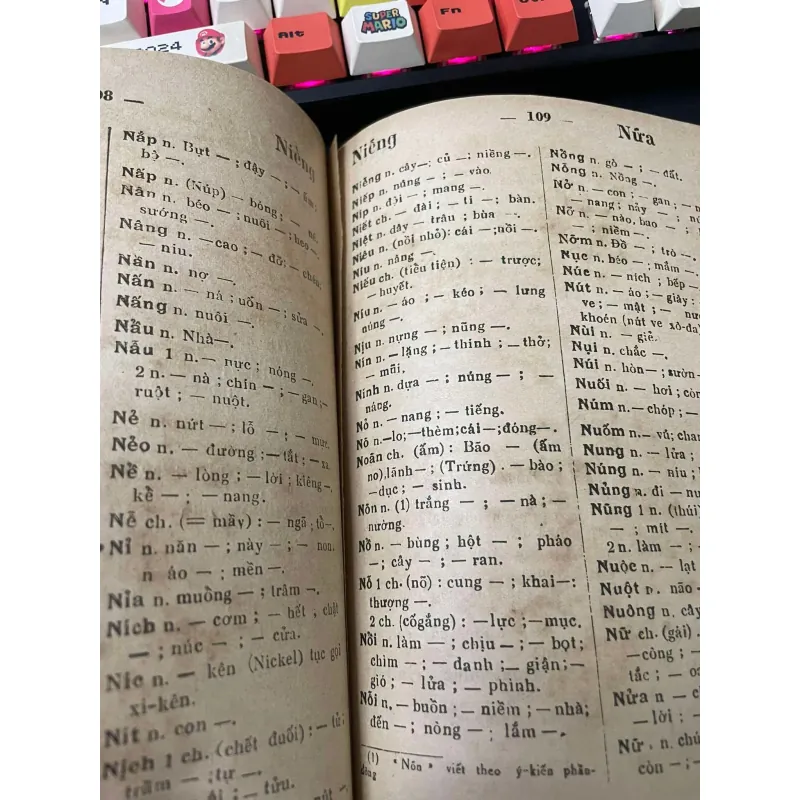 2024
Alt
SUPER
MARIO
Fn
Ctrl
08 —
Niễng
Nắp n. Bụt — ; đậy — ; — ấm;
bộ —.
Nấp n. (Núp) — bóng; —
Nân n. béo — ; nuôi — ; heo—
sướng —.
Nâng n. —cao ; — đỡ; —
— niu.
Nần n. nợ —.
Nấn n. — ná ; uốn — ; sửa —.
Nấng n. nuôi —.
Nầu n. Nhà—.
Nẫu 1 n. — nực ; nóng —.
2 n. — nà ; chín — ; — gan;—
ruột ; — nuột.
Nẻ n. nứt — ; lỗ — ; — mực
Nẻo n. — đường ;— tắt ; — xa
Nề n. — lòng ; — lời ; kiêng—,
kề — ; — nang.
Nễ ch. (= mầy) : — ngã ; tồ—.
Nỉ n. năn — ; này — ; — non.
n áo — ; mền —.
Nỉa n. muỗng — ; trâm —.
Ních n. — cơm ; — hết , chật
— ; núc — ; — cửa.
Nic n. — kên (Nickel) tục gọi
xi-kên.
Nít n. con —.
Nịch 1 ch. (chết đuối) : — tử;
trầm — ;tự —.
ái ; — tửu.
— 109 —
Niếng
Nữa
Niễng n. cây—; củ — ; niềng —.
Niếp n. náng — ; — vào.
Níp n. đội — ; mang —.
Niết ch. — đài ; — tì — ; bàn.
Niệt n. dây — trâu ; bùa —.
Niêu n. (nồi nhỏ): cái — ;nồi —.
Níu n. nâng —.
Niếu ch. (tiểu tiện) : — trược;
— huyết.
Níu n. — áo ; — kéo ; — lưng
núng —.
Nịu n. nựng — ; nũng —.
Nín n. — lặng ; — thinh ; — thở;
— mũi.
Nính n. dựa — ; núng — ; —
náng.
Nỏ n. — nang ; — tiếng.
Nó n. —lo; —thèm;cái—;đóng—.
Noãn ch. (ấm) : Bão — (ấm
no),lãnh— ; (Trứng) . — bào ;
—dục ; — sinh.
Nôn n. (1) trắng — ; — nà ; —
nường.
Nồ n. — bùng ; hột — ; pháo
— ; cây — ; — ran.
Nỗ 1 ch. (nõ) : cung — ; khai—:
thượng —.
2 ch. (cốgắng) : —lực ; —mục.
Nồi n. làm — ; chịu — ; — bọt;
chìm — ; — danh ;— giận;—
gió ; — lửa ; — phình.
Nỗi n. — buồn ; — niềm ; — nhà;
đến — ; nòng — ; lắm —.
(1) "Nôn" viết theo ý-kiến phần-
đông
Nồng n. gò — ; — đất.
Nông n. Nồng —.
Nở n. — con ; — gan ; —
— nang ; nảy — ;
Nỡ n. — nào, bao — ;
— ; niềm —.
Nỡm n. Đồ — ; trò —.
Nục n. béo — ; mắm —.
Núc n. — ních ; bếp —
Nút n. — áo ; — giày :
ve ; — mật ; —
khoén (nút ve xô-đa)
Nùi n. — giẻ.
Nụi n. chắc —.
Núi n. hòn— ; sườn—
Nuối n. — hơi ; còn
Núm n. —chóp ; —
Nuốm n.— vú; cha
Nung n. — lửa ;
Núng n. — níu ;
Nủng n. đi — nu
Nũng 1 n. (thúi)
— ; mít —.
2 n. làm — ;
Nuộc n. — lạt
Nuột n. não —
Nuông n. cây
Nữ ch. (gái) .
—công ; —
tắc ; —
Nửa n — ch
— lời : —
Nữ . n. chú
còn — ; —